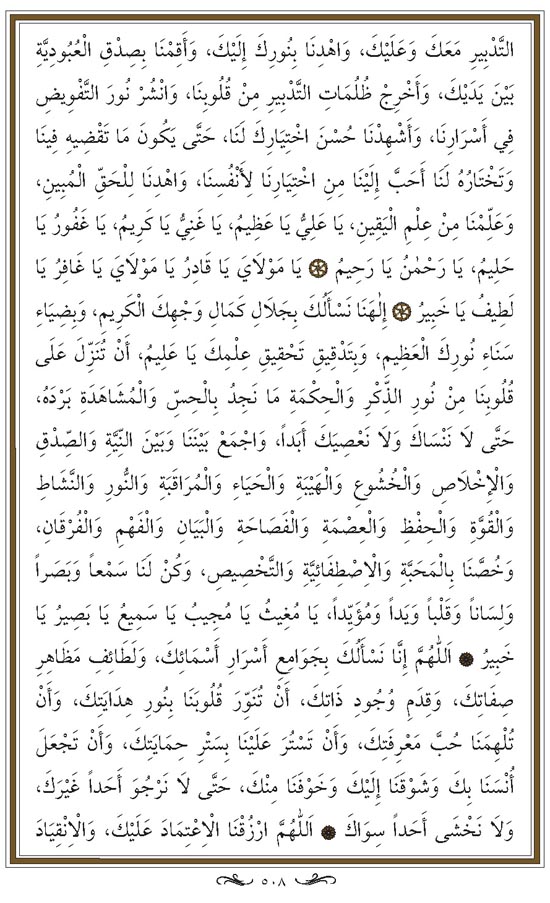 التَّدْبِيرِ مَعَكَ وَعَلَيْكَ، وَاهْدِنَا بِنُورِكَ إِلَيْكَ، وَأَقِمْنَا بِصِدْقِ الْعُبُودِيَّةِ
بَيْنَ يَدَيْكَ، وَأَخْرِجْ ظُلُمَاتِ التَّدْبِيرِ مِنْ قُلُوبِنَا، وَانْشُرْ نُورَ التَّفْوِيضِ
فِي أَسْرَارِنَا، وَأَشْهِدْنَا حُسْنَ اخْتِيَارِكَ لَنَا، حَتَّى يَكُونَ مَا تَقْضِيهِ فِينَا
وَتَخْتَارُهُ لَنَا أَحَبَّ إِلَيْنَا مِنِ اخْتِيَارِنَا لِأَنْفُسِنَا، وَاهْدِنَا لِلْحَقِّ الْمُبِينِ،
وَعَلِّمْنَا مِنْ عِلْمِ الْيَقِينِ، يَا عَلِيُّ يَا عَظِيمُ، يَا غَنِيُّ يَا كَرِيمُ، يَا غَفُورُ يَا
حَلِيمُ، يَا رَحْمٰنُ يَا رَحِيمُ ۞ يَا مَوْلَايَ يَا قَادِرُ يَا مَوْلَايَ يَا غَافِرُ يَا
لَطِيفُ يَا خَبِيرُ ۞ إِلٰهَنَا نَسْأَلُكَ بِجَلَالِ كَمَالِ وَجْهِكَ الْكَرِيمِ، وَبِضِيَاءِ
سَنَاءِ نُورِكَ الْعَظِيمِ، وَبِتَدْقِيقِ تَحْقِيقِ عِلْمِكَ يَا عَلِيمُ، أَنْ تُنَزِّلَ عَلَى
قُلُوبِنَا مِنْ نُورِ الذِّكْرِ وَالْحِكْمَةِ مَا نَجِدُ بِالْحِسِّ وَالْمُشَاهَدَةِ بَرْدَهُ،
حَتَّى لَا نَنْسَاكَ وَلَا نَعْصِيَكَ أَبَداً، وَاجْمَعْ بَيْنَنَا وَبَيْنَ النِّيَّةِ وَالصِّدْقِ
وَالْإِخْلَاصِ وَالْخُشُوعِ وَالْهَيْبَةِ وَالْحَيَاءِ وَالْمُرَاقَبَةِ وَالنُّورِ وَالنَّشَاطِ
وَالْقُوَّةِ وَالْحِفْظِ وَالْعِصْمَةِ وَالْفَصَاحَةِ وَالْبَيَانِ وَالْفَهْمِ وَالْفُرْقَانِ،
وَخُصَّنَا بِالْمَحَبَّةِ وَالْاِصْطِفَائِيَّةِ وَالتَّخْصِيصِ، وَكُنْ لَنَا سَمْعاً وَبَصَراً
وَلِسَاناً وَقَلْباً وَيَداً وَمُؤَيِّداً، يَا مُغِيثُ يَا مُجِيبُ يَا سَمِيعُ يَا بَصِيرُ يَا
خَبِيرُ ۞ اَللّٰهُمَّ إِنَّا نَسْأَلُكَ بِجَوَامِعِ أَسْرَارِ أَسْمَائِكَ، وَلَطَائِفِ مَظَاهِرِ
صِفَاتِكَ، وَقِدَمِ وُجُودِ ذَاتِكَ، أَنْ تُنَوِّرَ قُلُوبَنَا بِنُورِ هِدَايَتِكَ، وَأَنْ
تُلْهِمَنَا حُبَّ مَعْرِفَتِكَ، وَأَنْ تَسْتُرَ عَلَيْنَا بِسَتْرِ حِمَايَتِكَ، وَأَنْ تَجْعَلَ
أُنْسَنَا بِكَ وَشَوْقَنَا إِلَيْكَ وَخَوْفَنَا مِنْكَ، حَتَّى لَا نَرْجُوَ أَحَداً غَيْرَكَ،
وَلَا نَخْشَى أَحَداً سِوَاكَ ۞ اَللّٰهُمَّ ارْزُقْنَا الْاِعْتِمَادَ عَلَيْكَ، وَالْاِنْقِيَادَ
٥٠٨